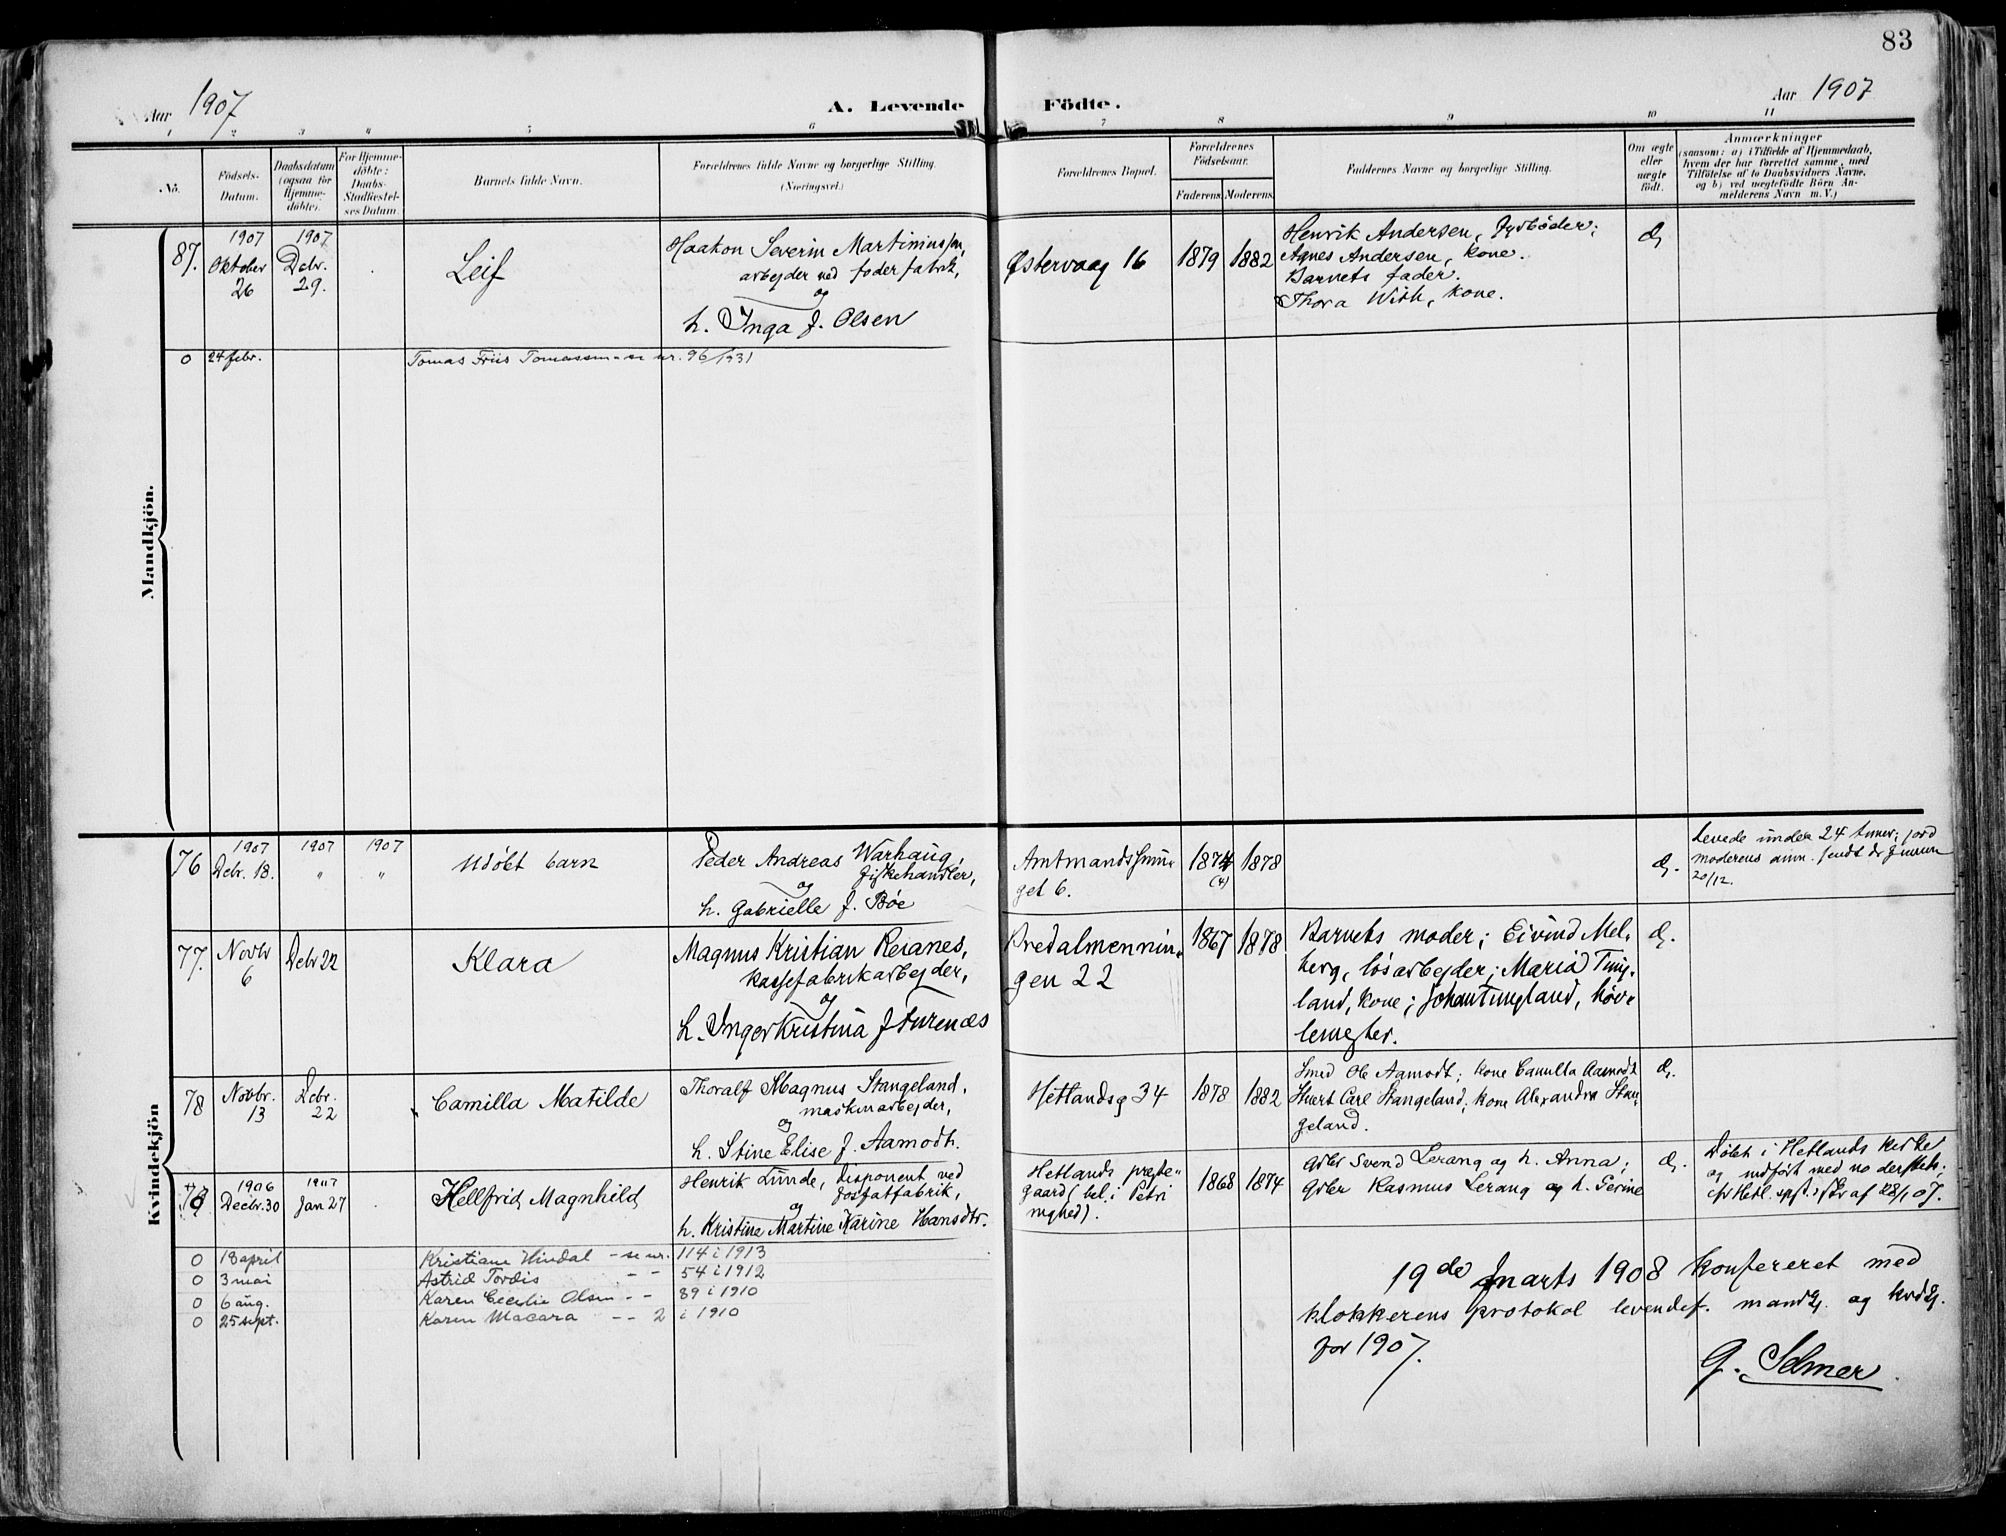 83
Aar 1907
A. Levende Födte.
Aar 1907
1 2 3 4 5 6 7 8 9 10 11
No.
Födsels-
Datum.
Daabsdatum
(ogsaa for
Hjemme-
döbte).
For Hjemme-
döbte:
Daabs-
Stadfæstel-
ses Datum.
Barnets fulde Navn.
Forældrenes fulde Navne og borgerlige Stilling.
(Næringsvei.)
Forældrenes Bopæl.
Forældrenes
Födselsaar.
Faderens. Moderens.
Faddernes Navne og borgerlige Stilling.
Om ægte
eller
uægte
födt.
Anmærkninger
(saasom: a) i Tilfælde af Hjemmedaab,
hvem der har forrettet samme, med
Tilföielse af to Daabsvidners Navne,
og b) ved uægtefödte Börn An-
melderens Navn m. V.)
Mandkjön.
87.
1907
Oktober
26
1907
Debr.
29.
Leif
Haakon Severin Martiniussen,
arbejder ved foderfabrik,
og
h. Inga f. Olsen
Østervaag 16
1879
1882
Henrik Andersen, fyrbøder;
Agnes Andersen, kone.
Barnets fader.
Thora With, kone.
Æ
0 24 febr. Tomas Friis Tomassen - se nr. 96/1931
Kvindekjön
76
1907
Debr. 18.
1907
"
1907
"
Udøbt barn
Peder Andreas Warhaug,
fiskehandler,
og
h. Gabrielle f. Bøe
Amtmandssmu-
get 6.
1874
(4)
1878
Æ.
Levede under 24 timer; jord
moderens anm. sendt dr
20/12.
77.
Novbr
6
Debr 22
Klara
Magnus Kristian Reianes,
kassefabrikarbejder,
og
h. Inger Kristina f.
Bredalmennin-
gen 22
1867
1878
Barnets moder; Eivind Mel-
berg, løsarbejder; Maria Ting-
land, kone; Johan Tingland, høv-
lemester.
Æ.
78
Novbr.
13
Debr.
22
Camilla Matilde
Thoralf Magnus Stangeland,
maskinarbejder,
og
h. Stine Elise f. Aamodt.
Hetlandsg 34
1878
1882
Smed Ole Aamodt; kone Camilla Aamodt
Stuert Carl Stangeland; kone Alexandra Stan-
geland.
Æ.
1906
Decbr. 30
1907
Jan 27
Hellfrid Magnhild
Henrik Lunde, disponent ved
fosfatfabrik,
og
h. Kristine Martine Karine Hansdtr.
Hetlands præste-
gaard (bel. i Petri
1868
1874
Gdbr Svend Lerang og h. Anna;
Gdbr Rasmus Lerang og h. Serine
Æ.
Døbt i Hetlands kirke
og indført med no dersteds;
cfr Hetl. spr. skr af 28/1 07.
0 18 april Kristiane Hindal - se nr. 114 i 1913
0 3 mai Astrid Tordis - - 54 i 1912
0 6 aug. Karen Cecilie Olsen - - 89 i 1910
0 25 sept. Karen Macara - - 2 i 1910
19de marts 1908 konfereret med
klokkerens protokol levendef. mandkj. og kvdkj.
for 1907.
G. Selmer